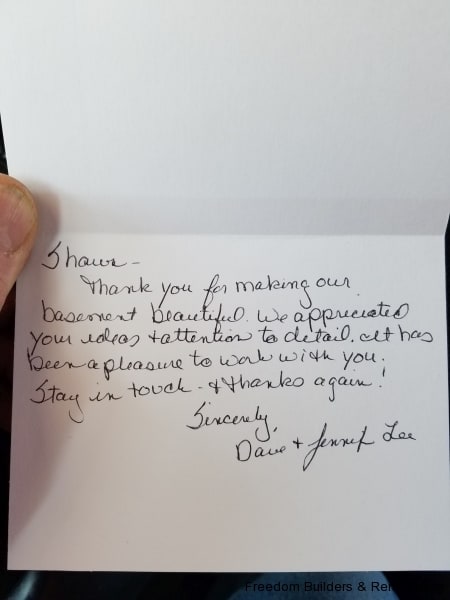 Shawn -
Thank you for making our
basement beautiful. We appreciated
your ideas + attention to detail. It has
been a pleasure to work with you.
Stay in touch - & thanks again!
Sincerely,
Dave + Jennif Lee
Freedom Builders & Re